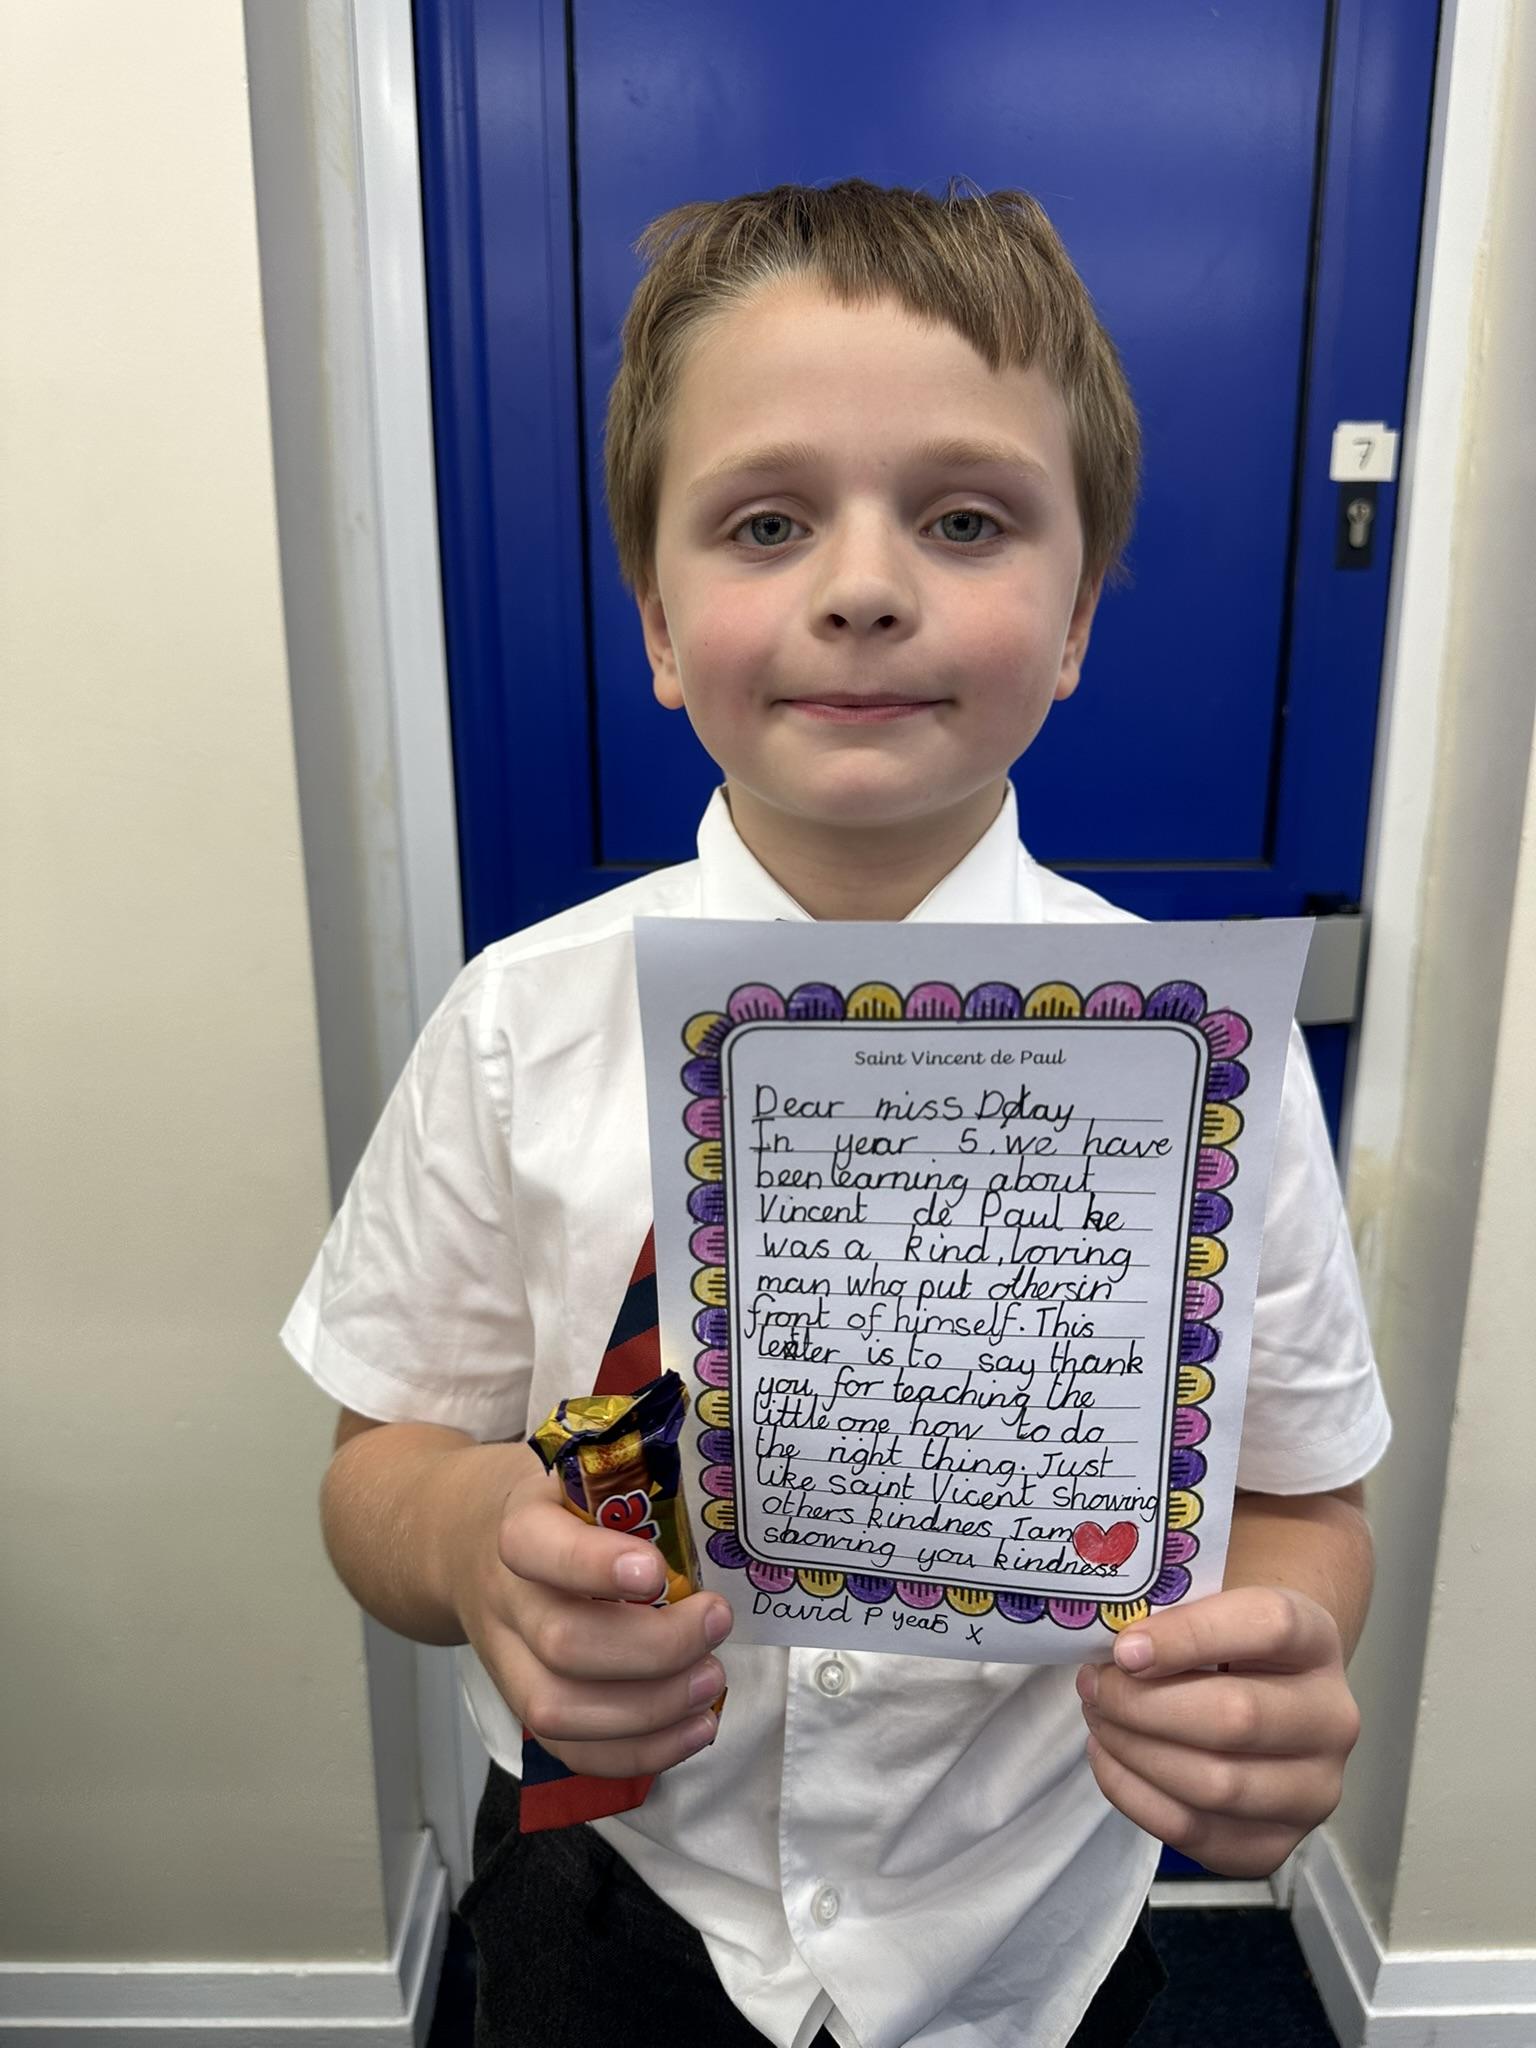 7
Saint Vincent de Paul
Dear miss Dolay
In year 5. we have
been learning about
Vincent de Paul he
was a kind, loving
man who put others in
front of himself. This
letter is to say thank
you for teaching the
little one how to do
the right thing. Just
like Saint Vicent Showing
others kindnes I am
showing you kindness
David P year5 x